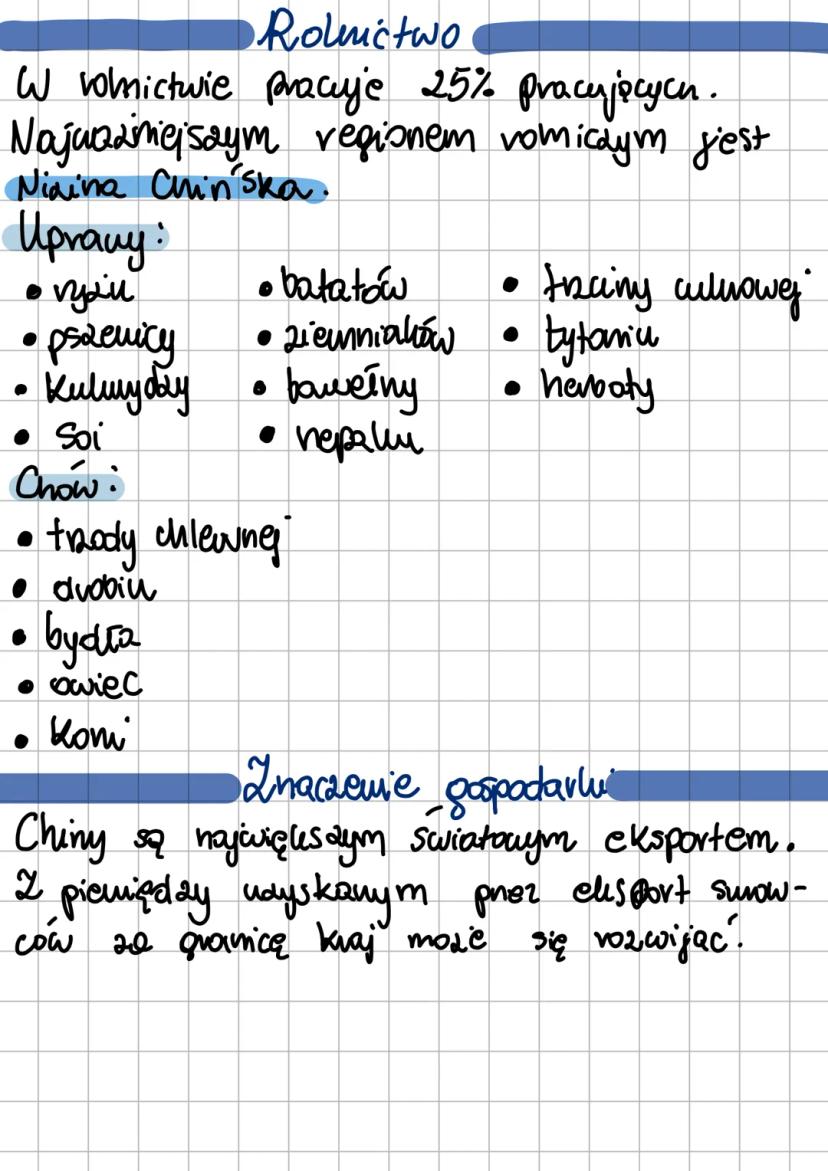 Rolnictwo
W rolnictwie pracuje 25% pracujących.
Najważniejszym regionem rolniczym jest
Nizina Chińska.
Uprawy:
• ryżu • batatów • trzciny cukrowej
• pszenicy • ziemniaków • tytoniu
• kukurydzy • bawełny • herbaty
• soi • rzepaku
Chów:
• trzody chlewnej
• drobiu
• bydła
• owiec
• koni
Znaczenie gospodarki
Chiny są największym światowym eksportem.
Z pieniędzy uzyskanym przez eksport surow-
ców za granicę kraj może się rozwijać.